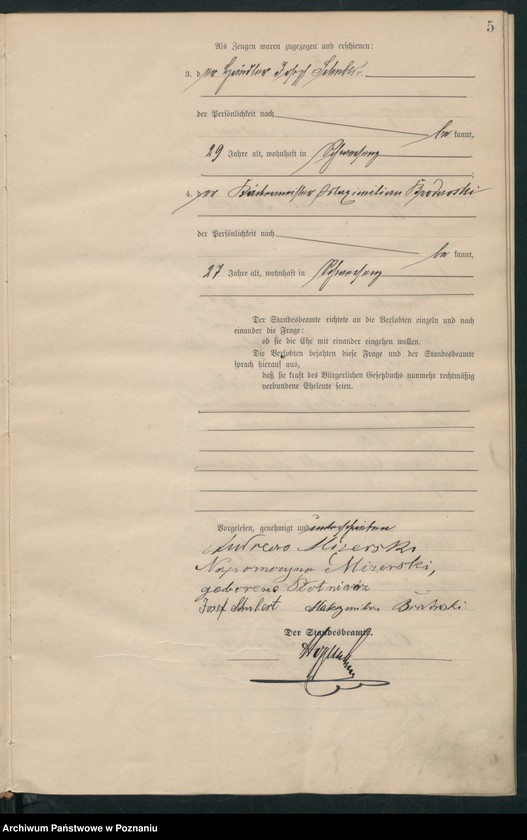 5
Als Zeugen waren zugezogen und erschienen:
3. der Händler Josef Schubert
der Persönlichkeit nach
be kannt,
29 Jahre alt, wohnhaft in Schwersenz
4. der Bäckermeister Maximilian
der Persönlichkeit nach
be kannt,
27 Jahre alt, wohnhaft in Schwersenz
Der Standesbeamte richtete an die Verlobten einzeln und nach
einander die Frage:
ob sie die Ehe mit einander eingehen wollen.
Die Verlobten bejahten diese Frage und der Standesbeamte
sprach hierauf aus,
daß sie kraft des Bürgerlichen Gesetzbuchs nunmehr rechtmäßig
verbundene Eheleute seien.
Vorgelesen, genehmigt und unterschrieben
Andreas Mizerski
Nepomocyna Mizerski,
geborene
Josef Schubert Maksymilian
Der Standesbeamte.
Archiwum Państwowe w Poznaniu